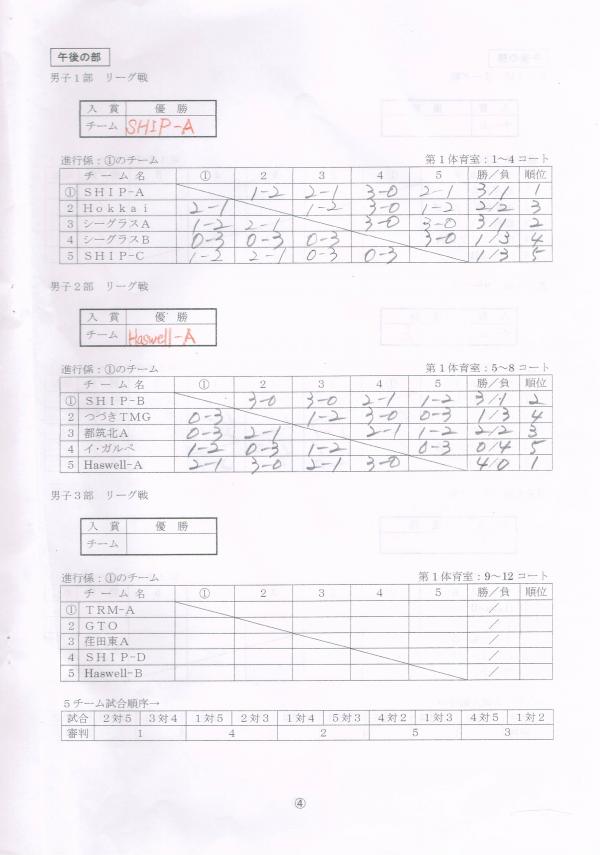 午後の部
男子1部 リーグ戦
入賞 優勝
チーム SHIP-A
進行係：①のチーム 第1体育室：1～4コート
チーム名 ① 2 3 4 5 勝／負 順位
① SHIP-A 1-2 2-1 3-0 2-1 3/1 1
2 Hokkai 2-1 1-2 3-0 1-2 2/2 3
3 シーグラスA 1-2 2-1 3-0 3-0 3/1 2
4 シーグラスB 0-3 0-3 0-3 3-0 1/3 4
5 SHIP-C 1-2 2-1 0-3 0-3 1/3 5
男子2部 リーグ戦
入賞 優勝
チーム Haswell-A
進行係：①のチーム 第1体育室：5～8コート
チーム名 ① 2 3 4 5 勝／負 順位
① SHIP-B 3-0 3-0 2-1 1-2 3/1 2
2 つづきTMG 0-3 1-2 3-0 0-3 1/3 4
3 都筑北A 0-3 2-1 2-1 1-2 2/2 3
4 イ・ガルペ 1-2 0-3 1-2 0-3 0/4 5
5 Haswell-A 2-1 3-0 2-1 3-0 4/0 1
男子3部 リーグ戦
入賞 優勝
チーム
進行係：①のチーム 第1体育室：9～12コート
チーム名 ① 2 3 4 5 勝／負 順位
① TRM-A ／
2 GTO ／
3 荏田東A ／
4 SHIP-D ／
5 Haswell-B ／
5チーム試合順序→
試合 2対5 3対4 1対5 2対3 1対4 5対3 4対2 1対3 4対5 1対2
審判 1 4 2 5 3
④